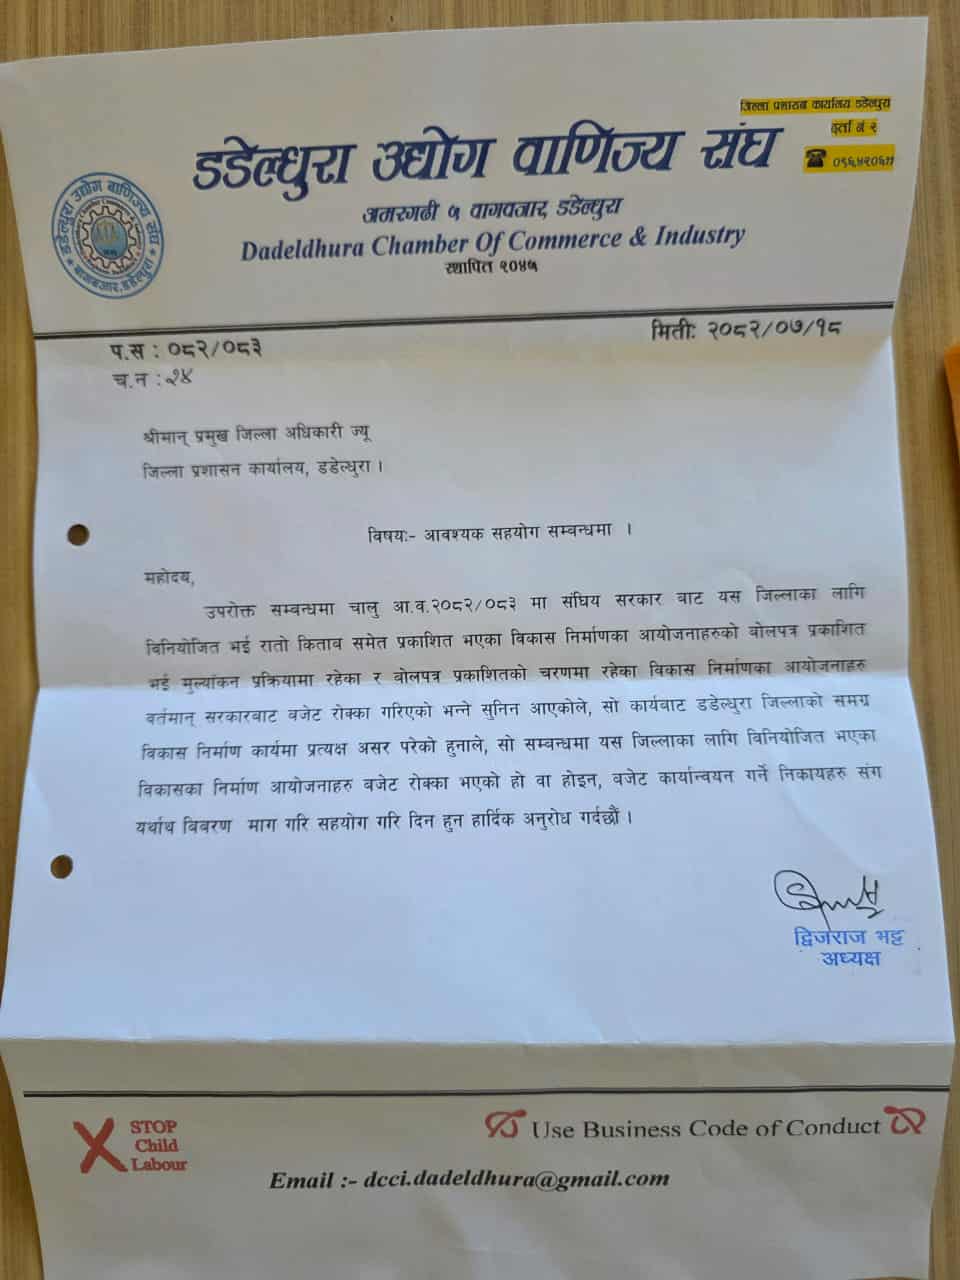 जिल्ला प्रशासन कार्यालय डडेल्धुरा
दर्ता नं २
डडेल्धुरा उद्योग वाणिज्य संघ
अमरगढी ५ वागवजार, डडेल्धुरा
Dadeldhura Chamber Of Commerce & Industry
स्थापित २०४५
प.स : ०८२/०८३
मितीः २०८२/०७/१८
च.न : २४
श्रीमान् प्रमुख जिल्ला अधिकारी ज्यू
जिल्ला प्रशासन कार्यालय, डडेल्धुरा ।
विषयः- आवश्यक सहयोग सम्बन्धमा ।
महोदय,
उपरोक्त सम्बन्धमा चालु आ.व.२०८२/०८३ मा संघिय सरकार बाट यस जिल्लाका लागि
विनियोजित भई रातो किताव समेत प्रकाशित भएका विकास निर्माणका आयोजनाहरुको बोलपत्र प्रकाशित
भई मुल्यांकन प्रक्रियामा रहेका र बोलपत्र प्रकाशितको चरणमा रहेका विकास निर्माणका आयोजनाहरु
वर्तमान् सरकारबाट बजेट रोक्का गरिएको भन्ने सुनिन आएकोले, सो कार्यबाट डडेल्धुरा जिल्लाको समग्र
विकास निर्माण कार्यमा प्रत्यक्ष असर परेको हुनाले, सो सम्बन्धमा यस जिल्लाका लागि विनियोजित भएका
विकासका निर्माण आयोजनाहरु बजेट रोक्का भएको हो वा होइन, बजेट कार्यान्वयन गर्ने निकायहरु संग
यर्थाथ विबरण माग गरि सहयोग गरि दिन हुन हार्दिक अनुरोध गर्दछौं ।
द्विजराज भट्ट
अध्यक्ष
STOP
Child
Labour
Use Business Code of Conduct
Email :- dcci.dadeldhura@gmail.com